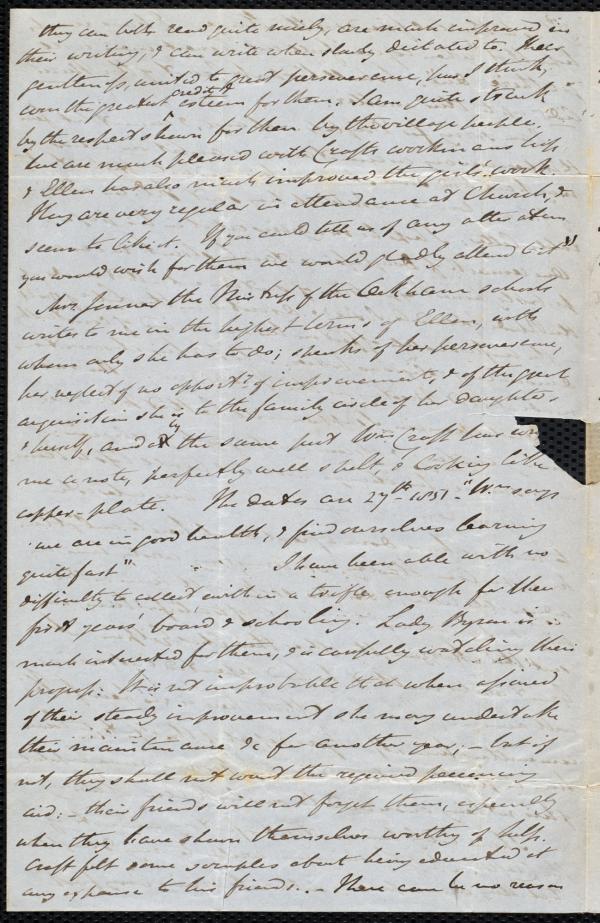 they can both read quite nicely, are much improved in
their writing, & can write when slowly dictated to. Their
gentleness, united to great perseverance, has I think,
won the greatest credit & esteem for them. I am quite struck
by the respect shewn for them by the village people.
We are much pleased with Crafts workmanship
& Ellen has also much improved the girls' work.
They are very regular in attendance at Church, &
seem to like it. If you could tell us of any alteration
you would wish for them we would gladly attend to it"
Mrs. the Mistress of the Ockham schools
writes to me in the highest terms of Ellen, with
whom only she has to do; speaks of her perseverance,
her neglect of no opporty. of improvement, & of the great
acquisition she is to the family circle of her daughters
& herself, and by the same post Wm Craft has
me a note, perfectly well spelt, & looking like
copper-plate. The dates are 27th 1851 - "Wm says
"we are in good health, & find ourselves learning
quite fast". I have been able with no
difficulty to collect within a trifle enough for their
first years' board & schooling. Lady Byron is
much interested for them, & is carefully watching their
progress: It is not improbable that when assured
of their steady improvement she may undertake
their maintenance &c for another year; - but if
not, they shall not want the required pecuniary
aid: - their friends will not forget them, especially
when they have shewn themselves worthy of help.
Craft felt some scruples about being educated at
any expense to his friends. - There can be no reason